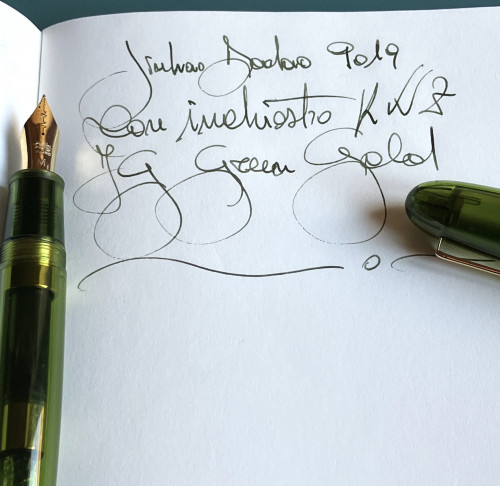 Jinhao Dadao 9019
Con inchiostro KWZ
IG Green Gold